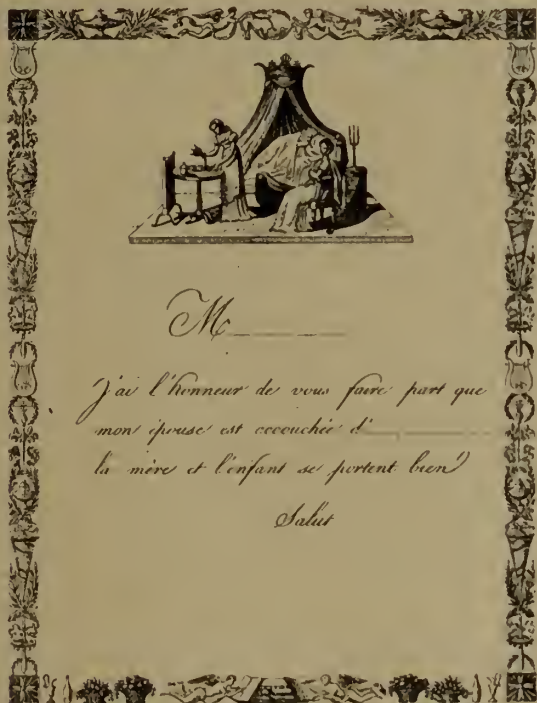 M
J'ai l'honneur de vous faire part que
mon épouse est accouchée d'
la mère et l'enfant se portent bien
Salut